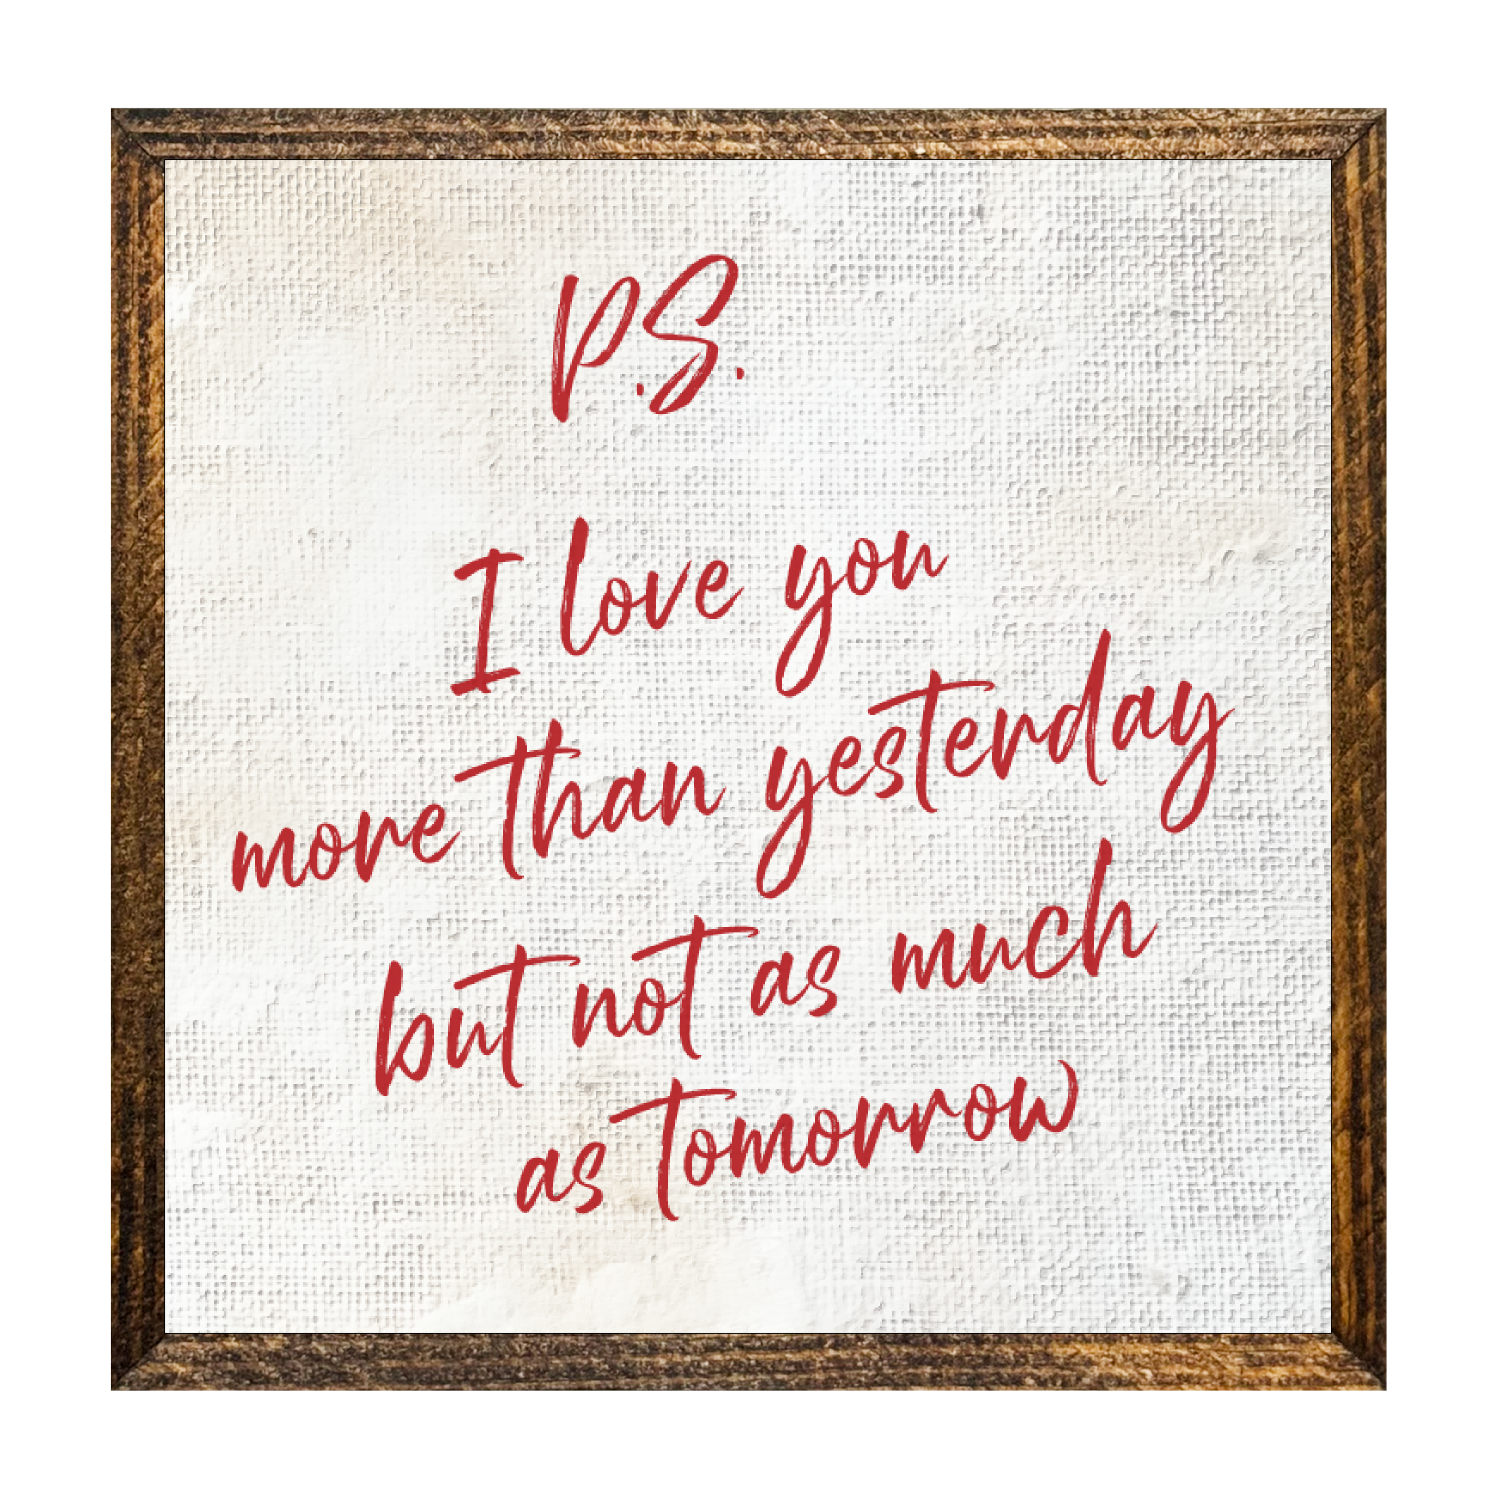 P.S.
I love you
more than yesterday
but not as much
as tomorrow